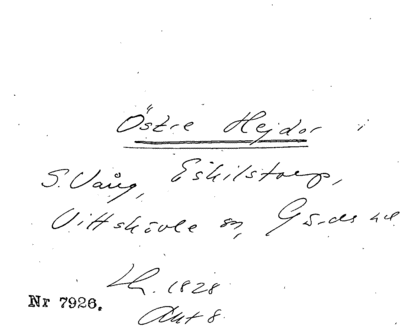 Östre Hejdor i
S. Vång, Eskilstorp,
Vittskövle sn, Gärds hd
Lh. 1828
Akt 8.
Nr 7926.